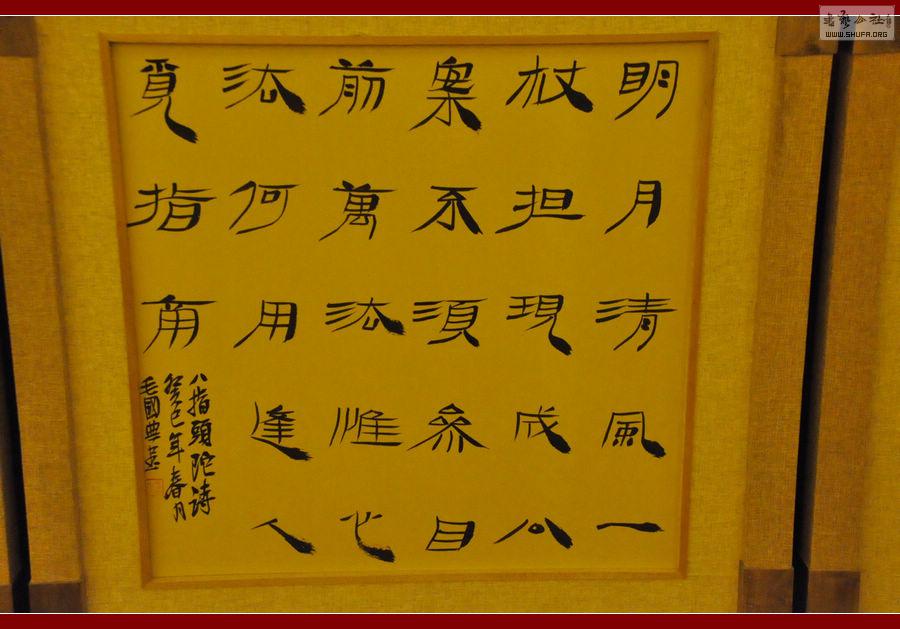 明月清風一
杖担現成公
案不須參目
前萬法惟心
法何用逢人
覓指角
八指頭陀詩
癸巳年春月
毛國典書
書藝公社
WWW.SHUFA.ORG